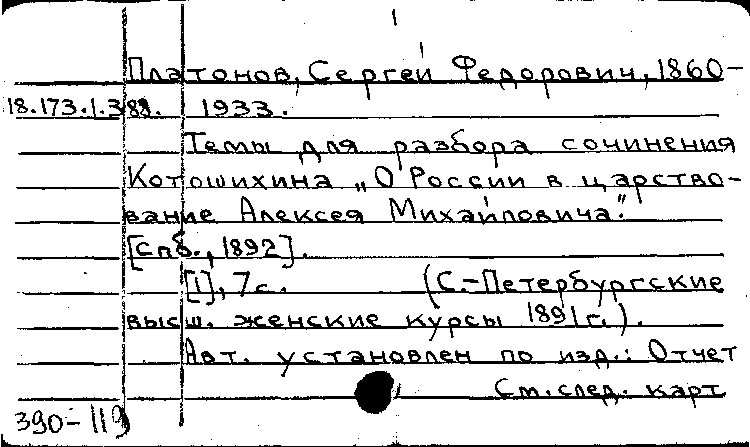 Платонов, Сергей Федорович, 1860-
18.173.1.388. 1933.
Темы для разбора сочинения
Котошихина „О России в царство-
вание Алексея Михайловича".
[Спб., 1892].
[1], 7 с. (С.-Петербургские
высш. женские курсы 1891 г.).
Авт. установлен по изд.: Отчет
См. след. карт
390-119